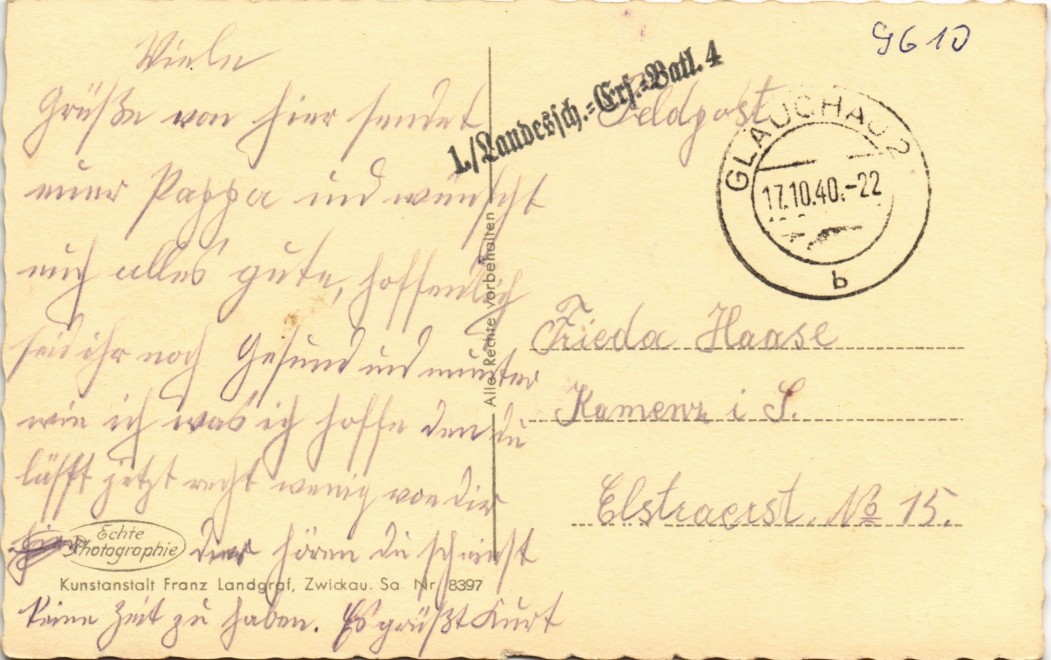 9610
Feldpost
1./Landessch.=Ers.=Batl. 4
GLAUCHAU 2
17.10.40.-22
b
Viele
Grüße von hier sendet
euer Pappa und wünscht
euch alles gute, hoffendlich
seid ihr noch Gesund und munter
wie ich was ich hoffe den du
läßt jetzt recht wenig von dir
hören du scheinst
keine Zeit zu haben. Es grüßt Kurt
Frieda Haase
Kamenz i S.
Elstraerst. No 15.
Alle Rechte vorbehalten
Echte
Photographie
Kunstanstalt Franz Landgraf, Zwickau. Sa. Nr. 8397